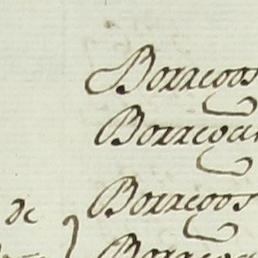 Borregos
Borrega
de Borregos
Borrega